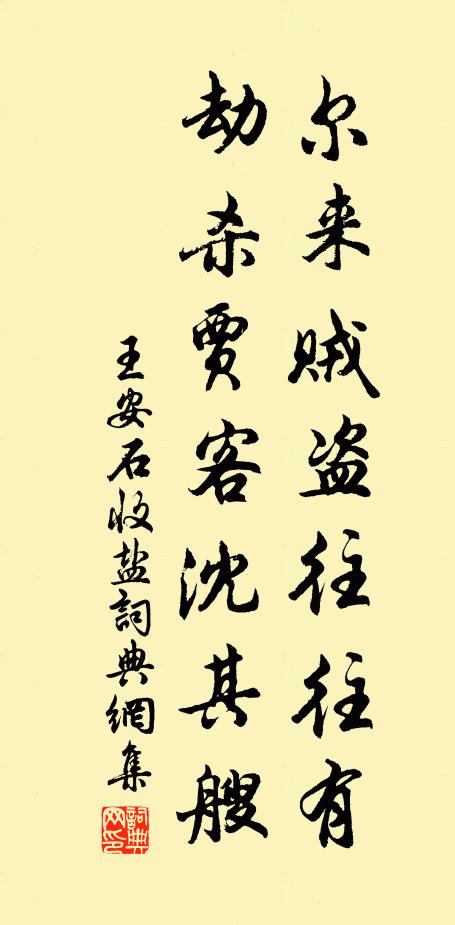 尔来贼盗往往有
劫杀贾客沈其艘
王安石收盐詞典網集
詞典網印